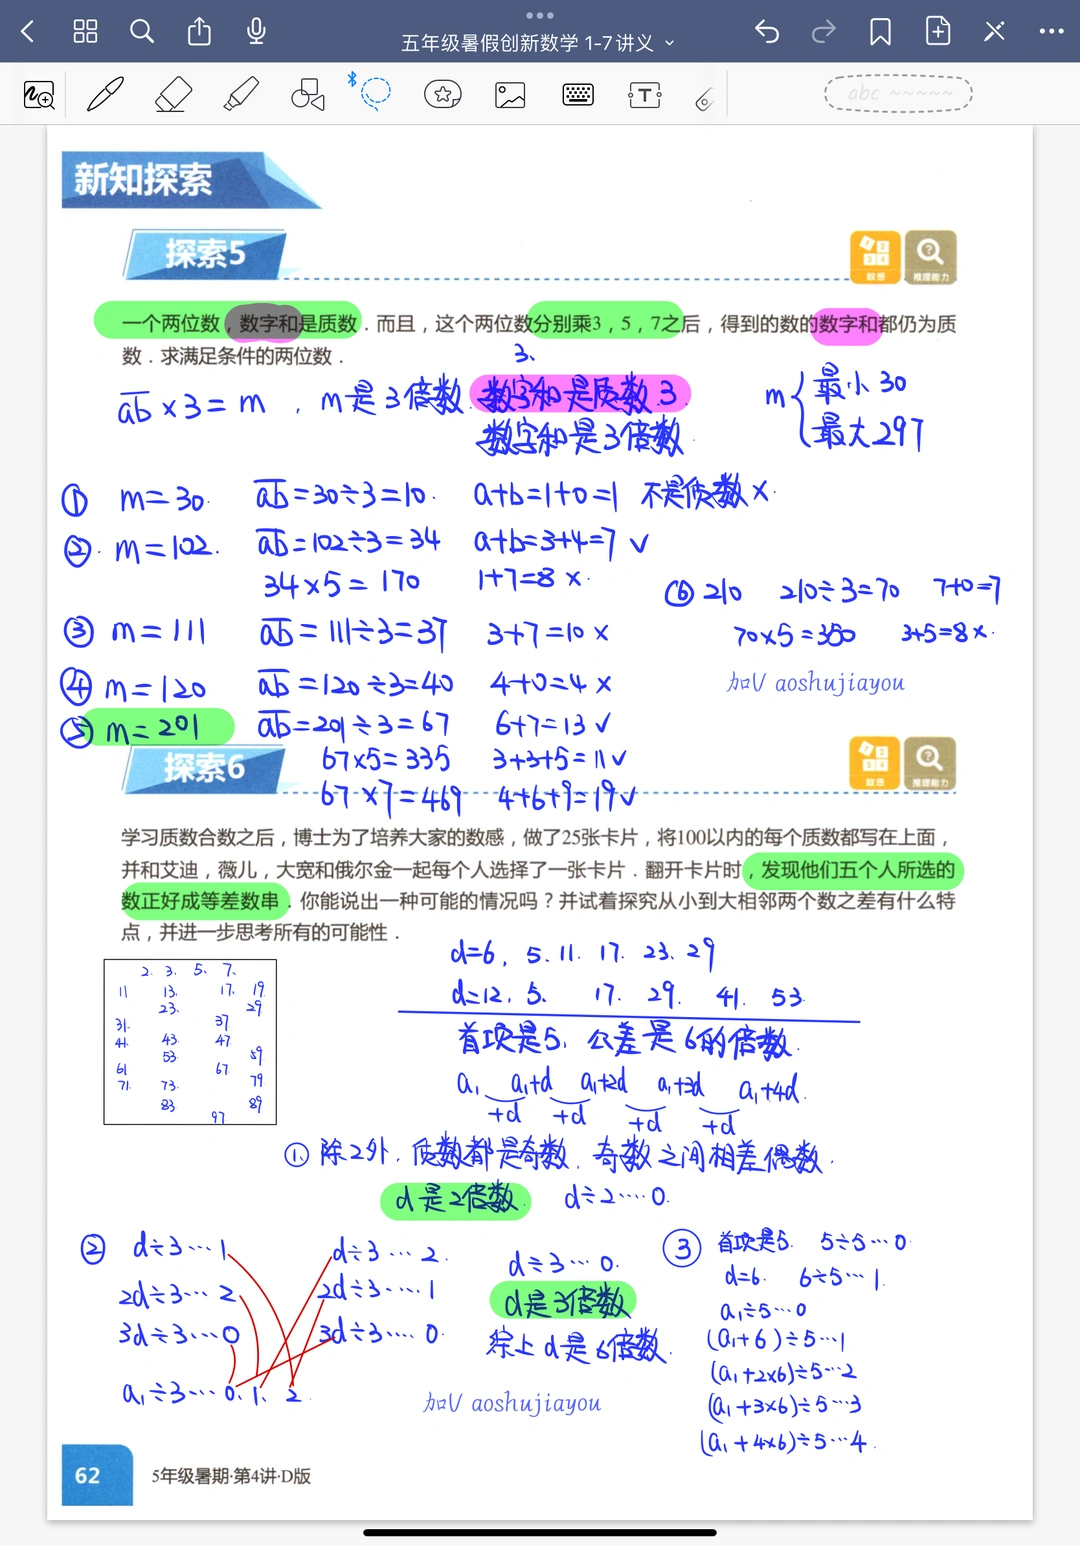 五年级暑假创新数学 1-7讲义
abc ~~~~~
新知探索
探索5
数感
推理能力
一个两位数，数字和是质数．而且，这个两位数分别乘3，5，7之后，得到的数的数字和都仍为质
数．求满足条件的两位数．
3、
ab×3=m ，m是3倍数. 数字和是质数 3.
数字和是3倍数.
m{最小30
最大297
① m=30. ab=30÷3=10. a+b=1+0=1 不是质数×.
②. m=102. ab=102÷3=34 a+b=3+4=7 ✓
34×5=170 1+7=8 ×.
③ m=111 ab=111÷3=37 3+7=10 ×
④ m=120 ab=120÷3=40 4+0=4 ×
⑤ m=201 ab=201÷3=67 6+7=13 ✓
67×5=335 3+3+5=11 ✓
67×7=469 4+6+9=19 ✓
⑥ 210 210÷3=70 7+0=7
70×5=350 3+5=8 ×.
加V aoshujiayou
探索6
数感
推理能力
学习质数合数之后，博士为了培养大家的数感，做了25张卡片，将100以内的每个质数都写在上面，
并和艾迪，薇儿，大宽和俄尔金一起每个人选择了一张卡片．翻开卡片时，发现他们五个人所选的
数正好成等差数串．你能说出一种可能的情况吗？并试着探究从小到大相邻两个数之差有什么特
点，并进一步思考所有的可能性．
2. 3. 5. 7.
11 13. 17. 19.
23. 29
31. 37
41. 43. 47
53 59
61 67.
71. 73. 79
83 89
97.
d=6, 5. 11. 17. 23. 29
d=12. 5. 17. 29. 41. 53
首项是5, 公差是6的倍数.
a₁ a₁+d a₁+2d a₁+3d a₁+4d.
+d +d +d +d
① 除2外. 质数都是奇数, 奇数之间相差偶数.
d是2倍数. d÷2····0.
② d÷3···1 d÷3···2. d÷3···0.
2d÷3···2 2d÷3····1 d是3倍数
3d÷3···0 3d÷3····0. 综上d是6倍数.
a₁÷3···0. 1. 2.
③ 首项是5. 5÷5···0
d=6. 6÷5···1.
a₁÷5···0
(a₁+6)÷5···1
(a₁+2×6)÷5···2
(a₁+3×6)÷5···3
(a₁+4×6)÷5···4.
加V aoshujiayou
62
5年级暑期·第4讲·D版